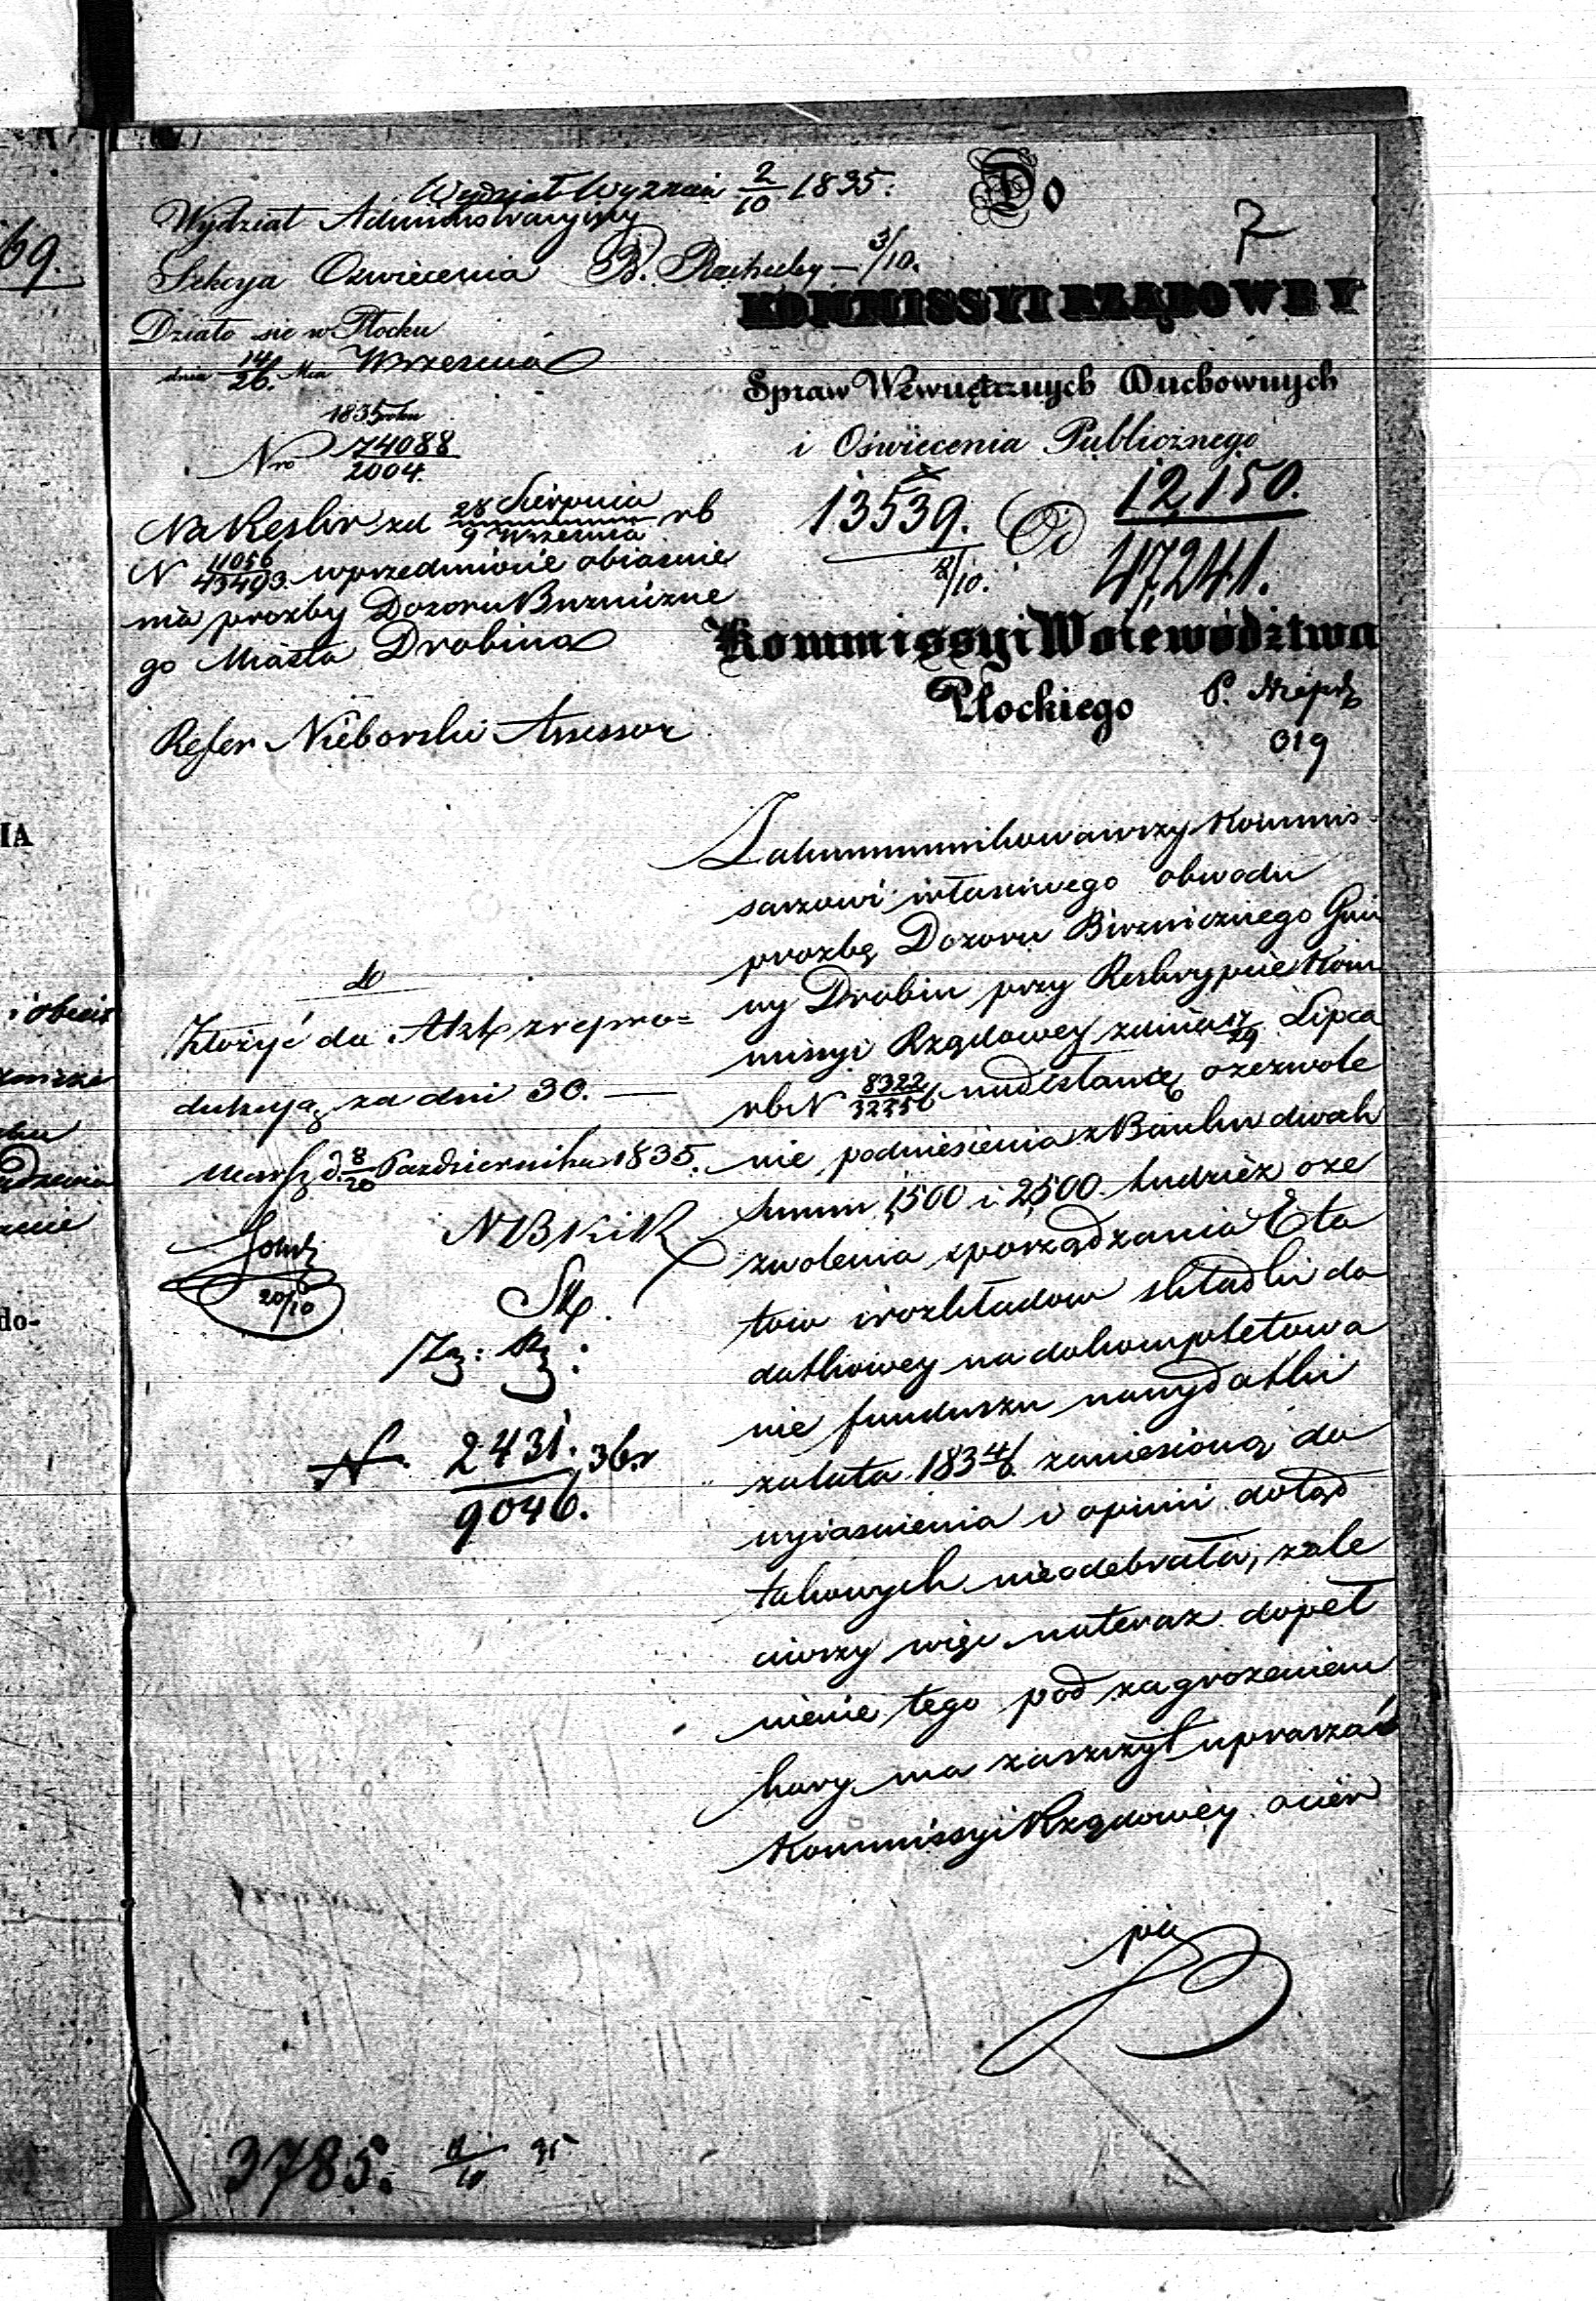 Wydział Wyznań 2/10 1835.
Wydział Administracyjny
Sekcya Oswiecenia B. Rachuby — 3/10.
Działo się w Płocku
dnia 14/26. Mca Wrzesnia
1835 roku
Nro 74088/2004.
Na Reskr. zd 28 Sierpnia/9 Wrzesnia rb
N 11056/43493. w przedmiocie obiasnie
nia prozby Dozoru Buznicne
go Miasta Drobina
Refer Nieborski Assessor
Do
7
KOMMISSYI RZĄDOWEY
Spraw Wewnętrznych Duchownych
i Oświecenia Publicznego
13539.
2/10.
Od
12,150.
47,241.
Kommissyi Woiewództwa
Płockiego
P.
319
Zakommunikowawszy Kommis-
sarzowi właściwego obwodu
prozbę Dozoru Bożniczego Gmi
ny Drobin przy Reskrypcie Kom
missyi Rządowey z dnia 17/29 Lipca
rb N 8322/32256 nadesłaną o zezwole
nie podniesienia z Banku dwóch
Summ 1,500 i 2,500. tudzież o ze
zwolenia sporządzania Eta
tow i rozkładow składki do
datkowey na dokompletowa
nie funduszu na wydatki
za lata 1834/6. zaniesioną do
wyiasnienia i opinii dotąd
takowych nieodebrała, zale
ciwszy więc na teraz dopeł
nienie tego pod zagrożeniem
kary ma zaszczyt upraszać
Kommissyi Rządowéy o cier
pli
Złożyć do Akt z repro=
dukcyą za dni 30. —
Warsz d. 8/20 Października 1835.
20/10
N 2431./9046. 36.r
3785. 35